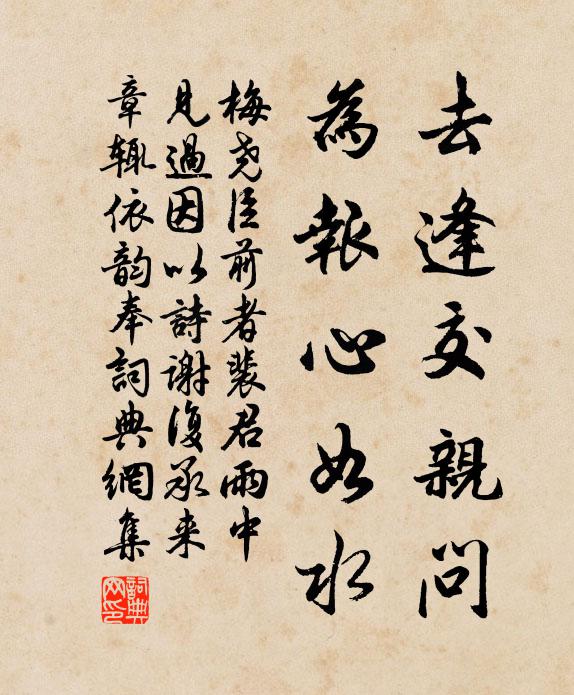 去逢交親問
為報心如水
梅堯臣前者裴君雨中
見過因以詩謝復承来
章輒依韵奉詞典網集
詞典網印